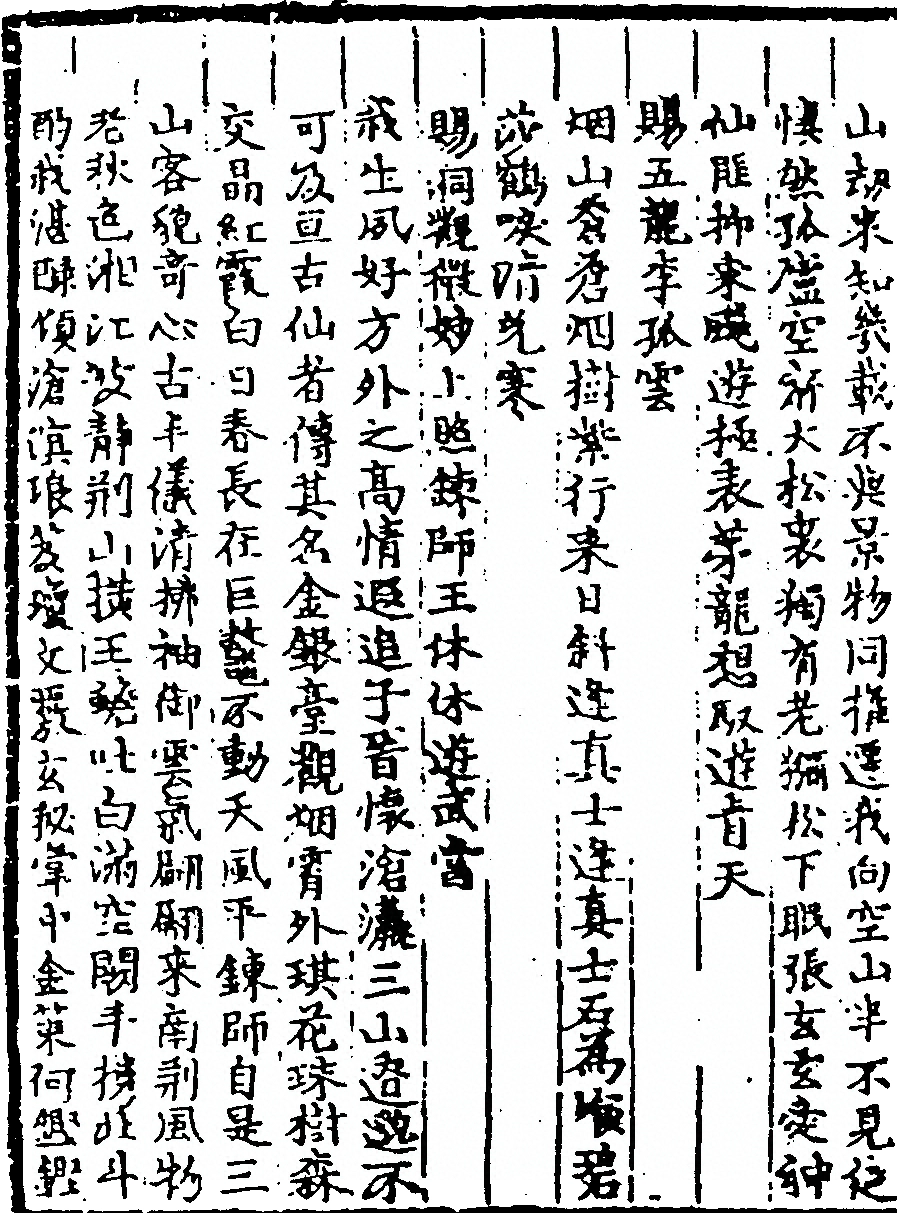 山刼来知幾載不與景物同推遷我向空山半不見從
慎然孤虛空祈大松裳獨有老猕松下眠張玄玄愛神
仙匪抑東暖遊極表茅龍想馭遊青天
賜五龍李孤雲
烟山蒼蒼烟樹紫行来日斜逢真士逢真士石為
鶴唳晴光寒
賜洞觀微妙上照錬師王休休遊武當
我生夙好方外之高情遐追子晋懷滄瀛三山遼邈不
可及亘古仙者傳其名金銀臺觀烟霄外琪花珠樹森
交晶紅霞白日春長在巨鼇不動天風平錬師自是三
山客貌奇心古丰儀清拂袖御雲氣翩翩来南荆風物
老秋色湘江波静荆山横玉蟾吐白滿空闊手挽北斗
酌我湛醁傾滄溟琅笈瓊文義玄秘掌中金葉何